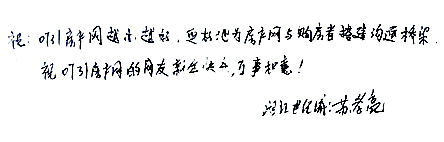 祝：吖引房产网越办越好，更好地为房产网与购房者搭建沟通桥梁
祝吖引房产网的网友新年快乐，万事如意！